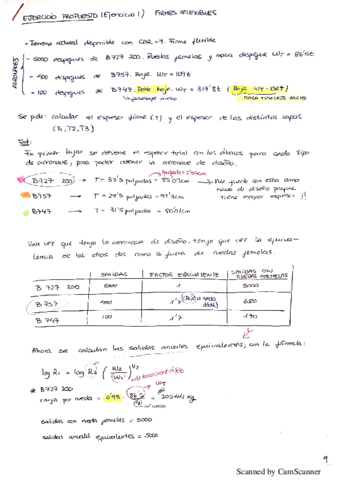 EJERCICIO PROPUESTO (Ejercicio 1) FIRMES FLEXIBLES
AERONAVES
- Terreno natural disponible con CBR = 9. Firme flexible
- 5000 despegues de B727 200. Ruedas gemelas y masa despegue WT = 86'5t
- 400 despegues de B757. Bogie. WT = 109t
- 100 despegues de B747. Doble bogie. WT = 317'8t (Bogie
Se pide: calcular el espesor firme (T) y el espesor de las distintas capas
(T1, T2, T3)
Sol:
En primer lugar se obtiene el espesor total con los ábacos para cada tipo
de aeronave, para poder obtener la aeronave de diseño.
B727 200 → T = 33'5 pulgadas =
B757 → T =
B747 → T = 31'5 pulgadas = 80'01cm
→ Me quedo con esta como
nave de diseño porque
tiene mayor espesor !!
Una vez que tengo la aeronave de diseño, tengo que ver la equiva-
lencia de los otros dos como si fuera de ruedas gemelas.
SALIDAS FACTOR EQUIVALENTE SALIDAS CON RUEDAS GEMELAS
B 727 200 5000 1 5000
B 757 400 1'7 680
B 747 100 1'7 170
Ahora se calculan las salidas anuales equivalentes, con la fórmula:
log R1 = log R2 (W2/W1)^1/2
* B727 200
carga por rueda = 0'95 ·
salidas con rueda gemelas = 5000
salidas anuales equivalentes = 5000
9
Scanned by CamScanner